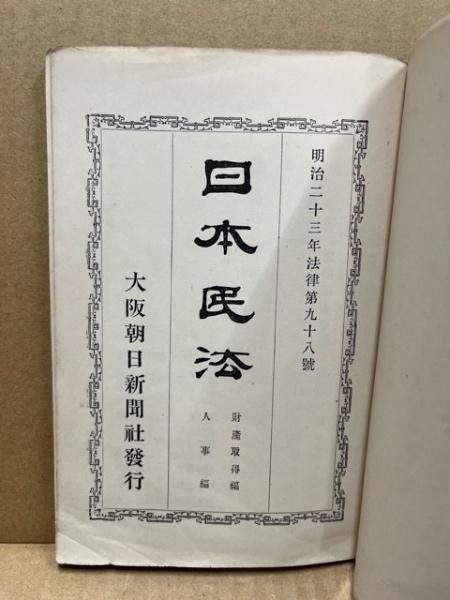 明治二十三年法律第九十八號
日本民法
財產取得編
人事編
大阪朝日新聞社發行